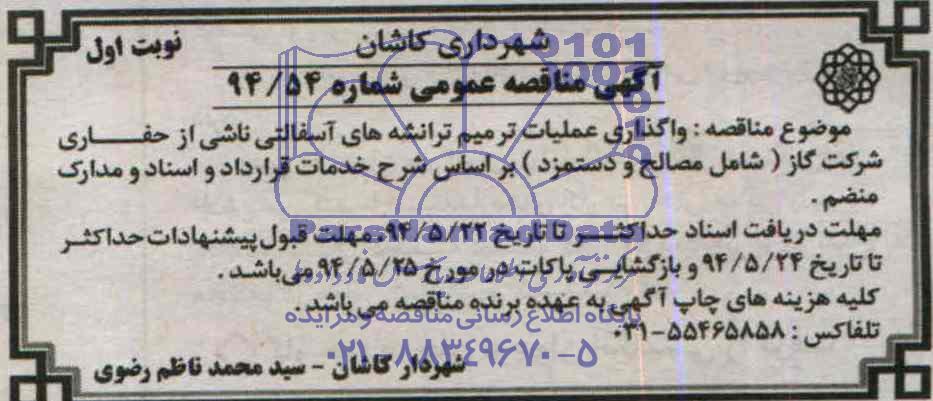 نوبت اول
شهرداری کاشان
آگهی مناقصه عمومی شماره ۹۴/۵۴
موضوع مناقصه : واگذاری عملیات ترمیم ترانشه های آسفالتی ناشی از حفــــــاری
شرکت گاز ( شامل مصالح و دستمزد ) بر اساس شرح خدمات قرارداد و اسناد و مدارک
منضم .
مهلت دریافت اسناد حداکثــر تا تاریخ ۹۴/۵/۲۲، مهلت قبول پیشنهادات حداکثـر
تا تاریخ ۹۴/۵/۲۴ و بازگشایــی پاکات در مورخ ۹۴/۵/۲۵ می باشد .
کلیه هزینه های چاپ آگهی به عهده برنده مناقصه می باشد .
پایگاه اطلاع رسانی مناقصه و مزایده
تلفاکس : ۵۵۴۶۵۸۵۸-۰۳۱
۰۲۱-۸۸۳۴۹۶۷۰-۵
شهردار کاشان - سید محمد ناظم رضوی